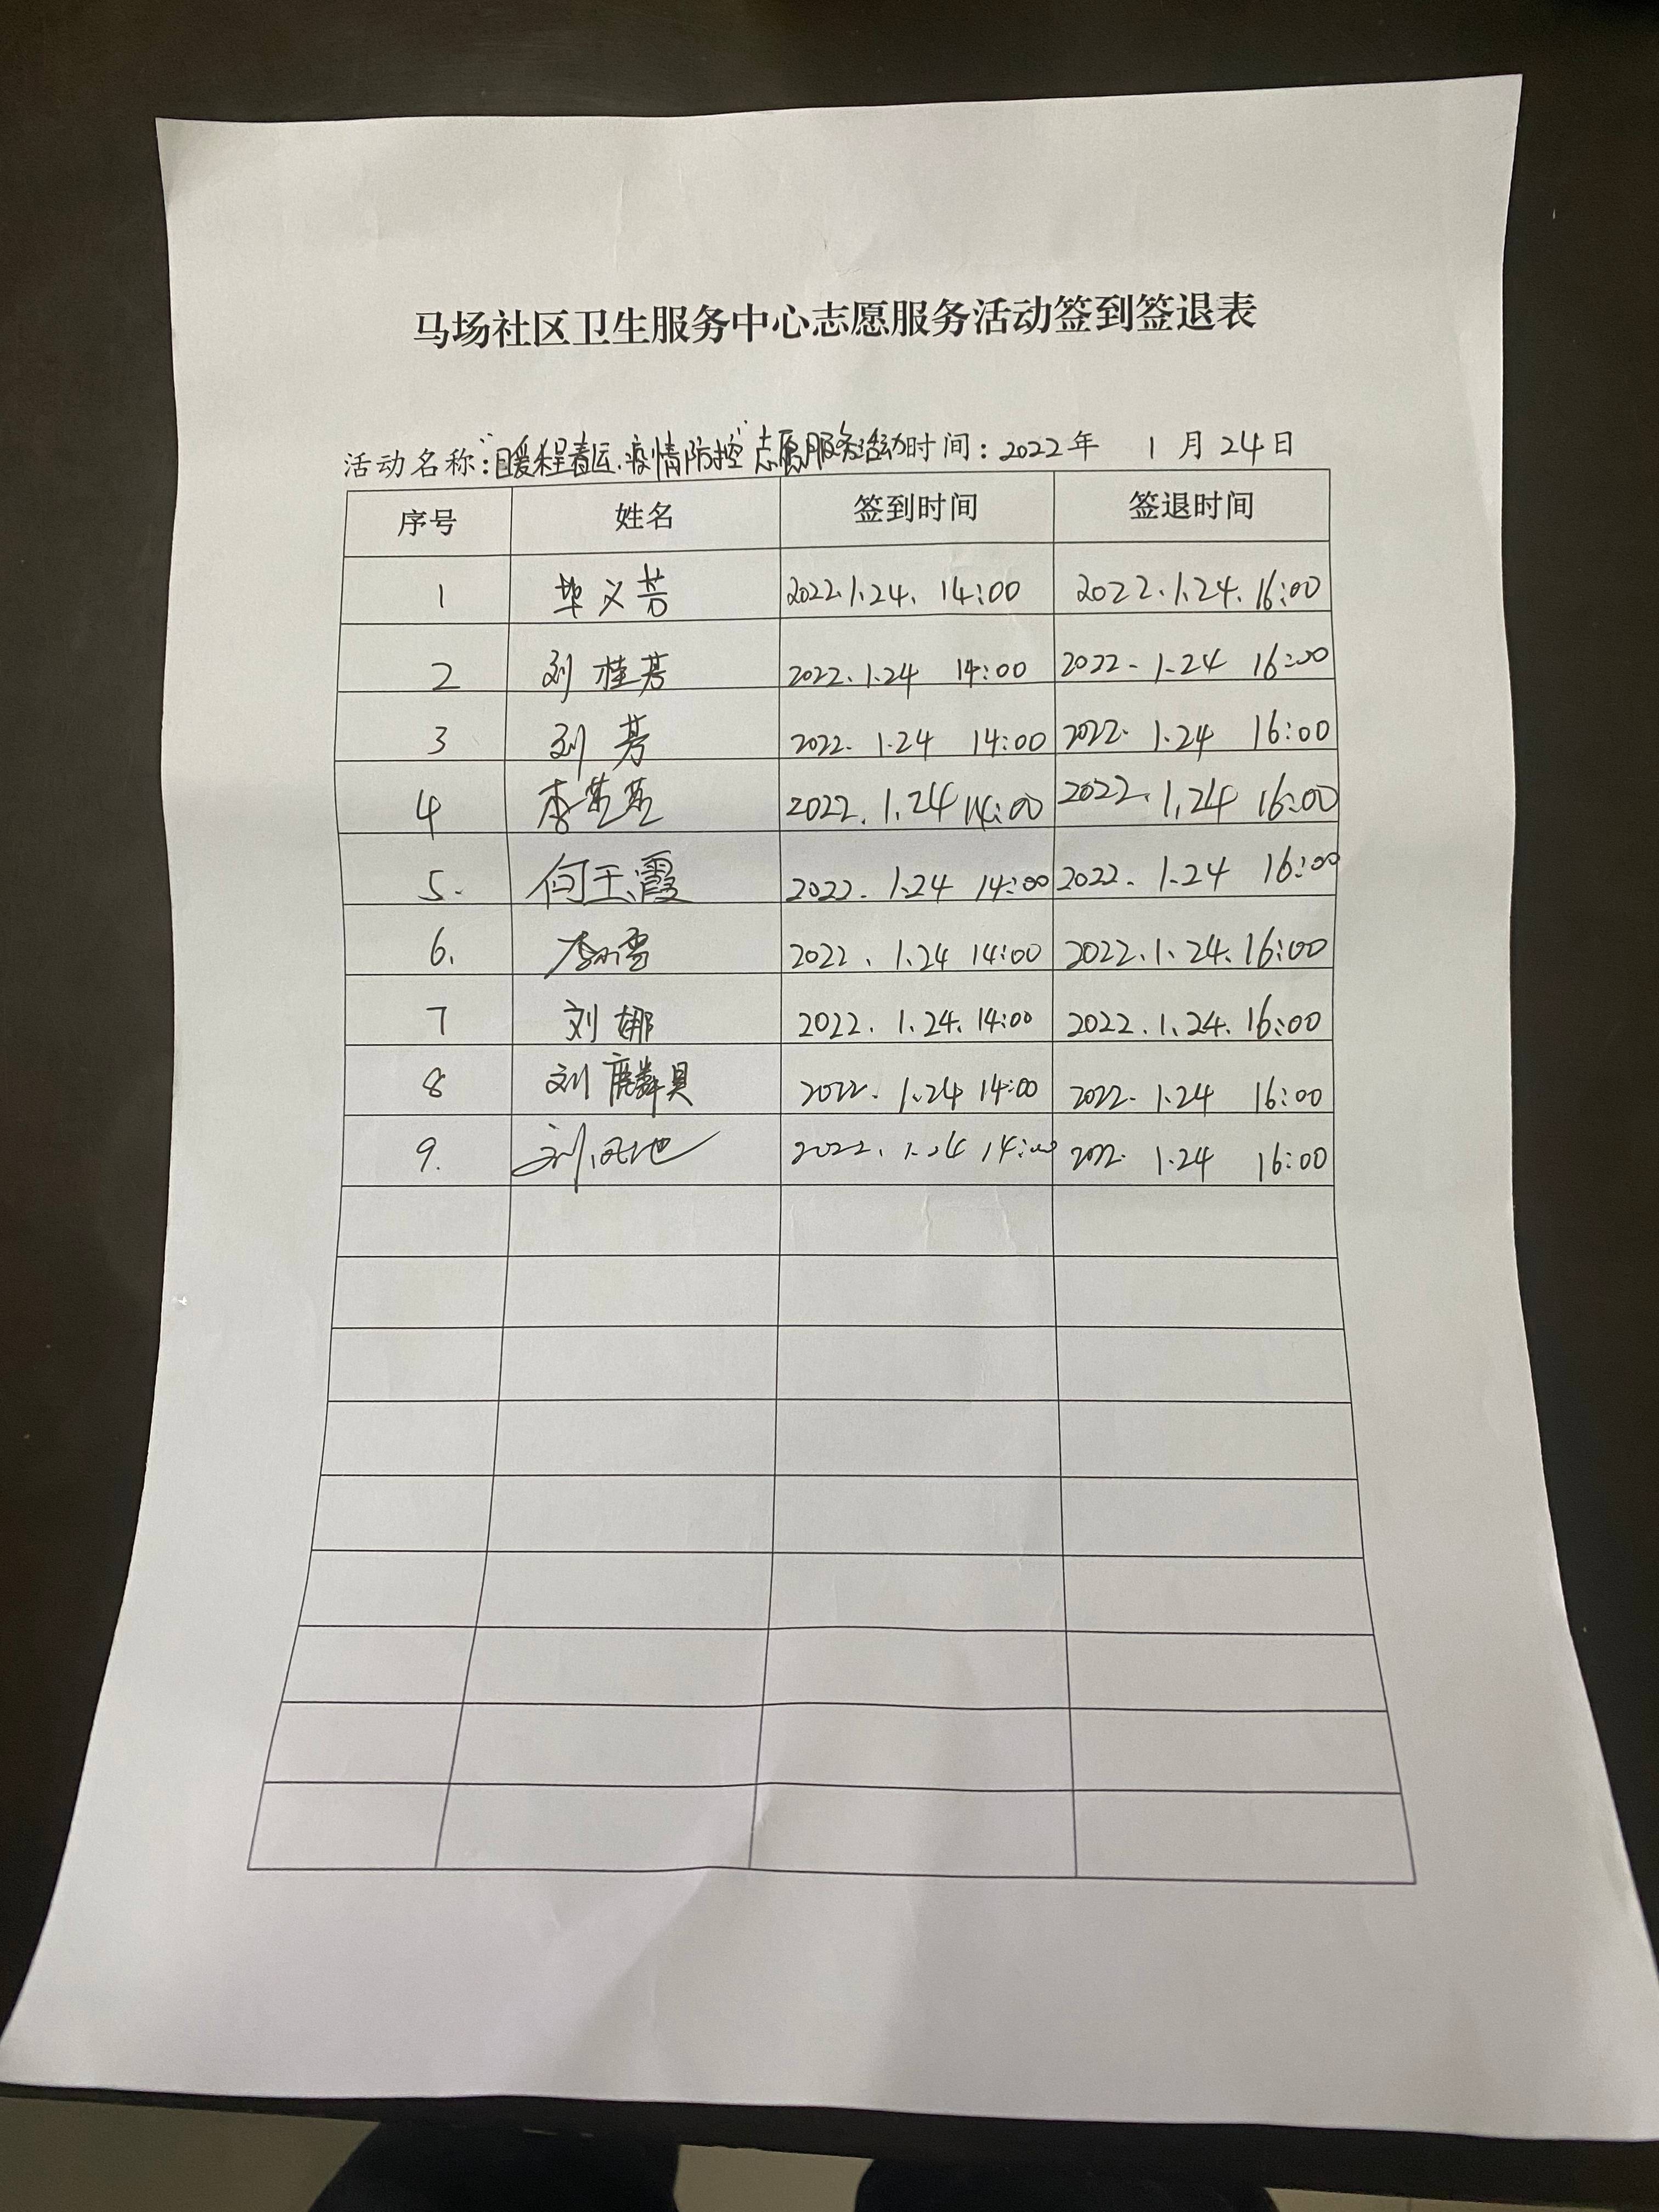 马场社区卫生服务中心志愿服务活动签到签退表
活动名称:“暖程春运.疫情防控”志愿服务活动时间:2022年 1月24日
序号 姓名 签到时间 签退时间
1 毕义芳 2022.1.24. 14:00 2022.1.24.16:00
2 刘桂芳 2022.1.24 14:00 2022.1.24 16:00
3 刘芳 2022.1.24 14:00 2022.1.24 16:00
4 2022.1.24 14:00 2022.1.24 16:00
5. 何玉霞 2022.1.24 14:00 2022.1.24 16:00
6. 2022.1.24 14:00 2022.1.24.16:00
7 刘娜 2022.1.24.14:00 2022.1.24.16:00
8 刘麟具 2022.1.24 14:00 2022.1.24 16:00
9. 2022.1.24 14:00 2022.1.24 16:00